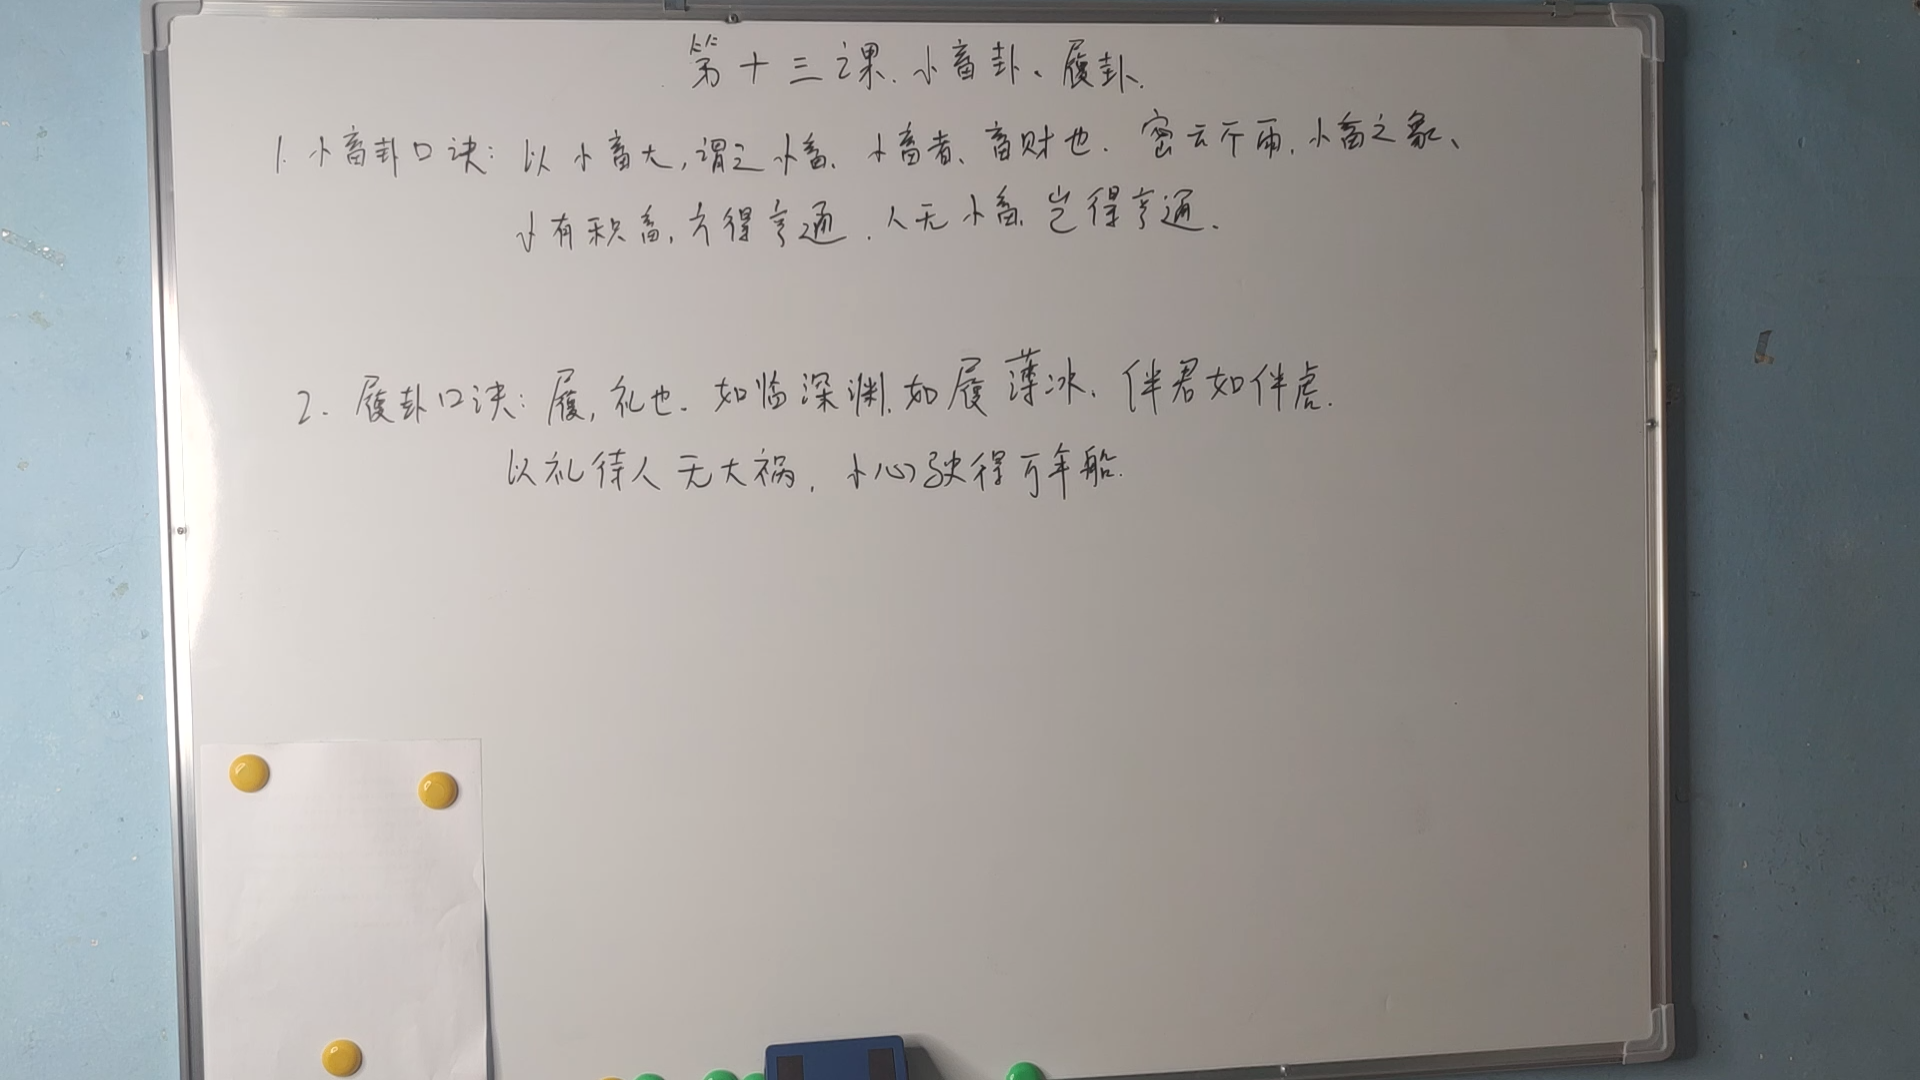 第十三课.小畜卦、履卦.
1.小畜卦口诀:以小畜大,谓之小畜.小畜者、畜财也.密云不雨.小畜之象、
小有积畜,方得亨通.人无小畜.岂得亨通.
2.履卦口诀:履,礼也.如临深渊.如履薄冰.伴君如伴虎.
以礼待人无大祸.小心驶得万年船.